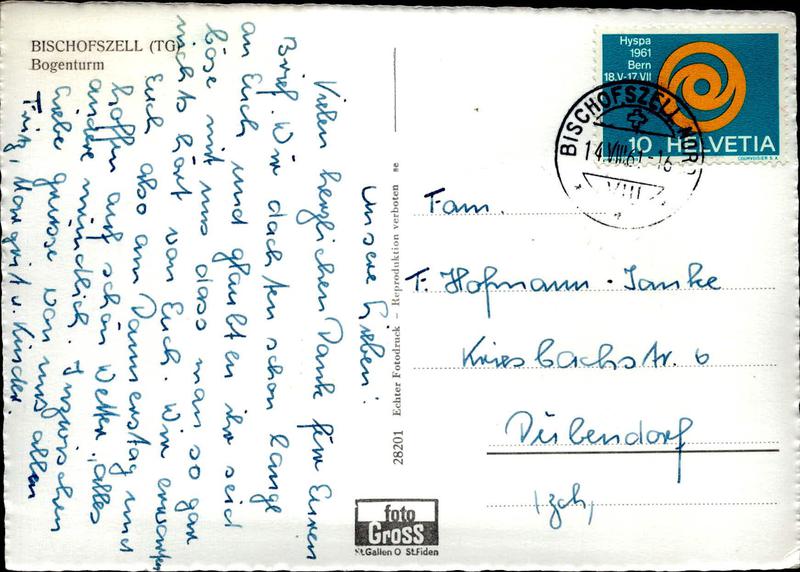 BISCHOFSZELL (TG)
Bogenturm
Unsere Lieben!
Vielen herzlichen Dank für Euren
Brief. Wir dachten schon lange
an Euch und glaubten ihr seid
böse mit uns dass man so gar
nichts hört von Euch. Wir erwarten
Euch also am Donnerstag und
hoffen auf schön Wetter, alles
andere mündlich. Inzwischen
liebe grüsse von uns allen
Fritz, Margrit u. Kinder.
28201 Echter Fotodruck – Reproduktion verboten se
foto
Gross
St.Gallen O St.Fiden
Hyspa
1961
Bern
18.V-17.VII
10 HELVETIA
COURVOISIER S.A.
BISCHOFSZELL NORD
14.VIII.61-16
VIII
Fam.
T. Hofmann-Janke
Kriesbachstr. 6
Dübendorf
/zch,